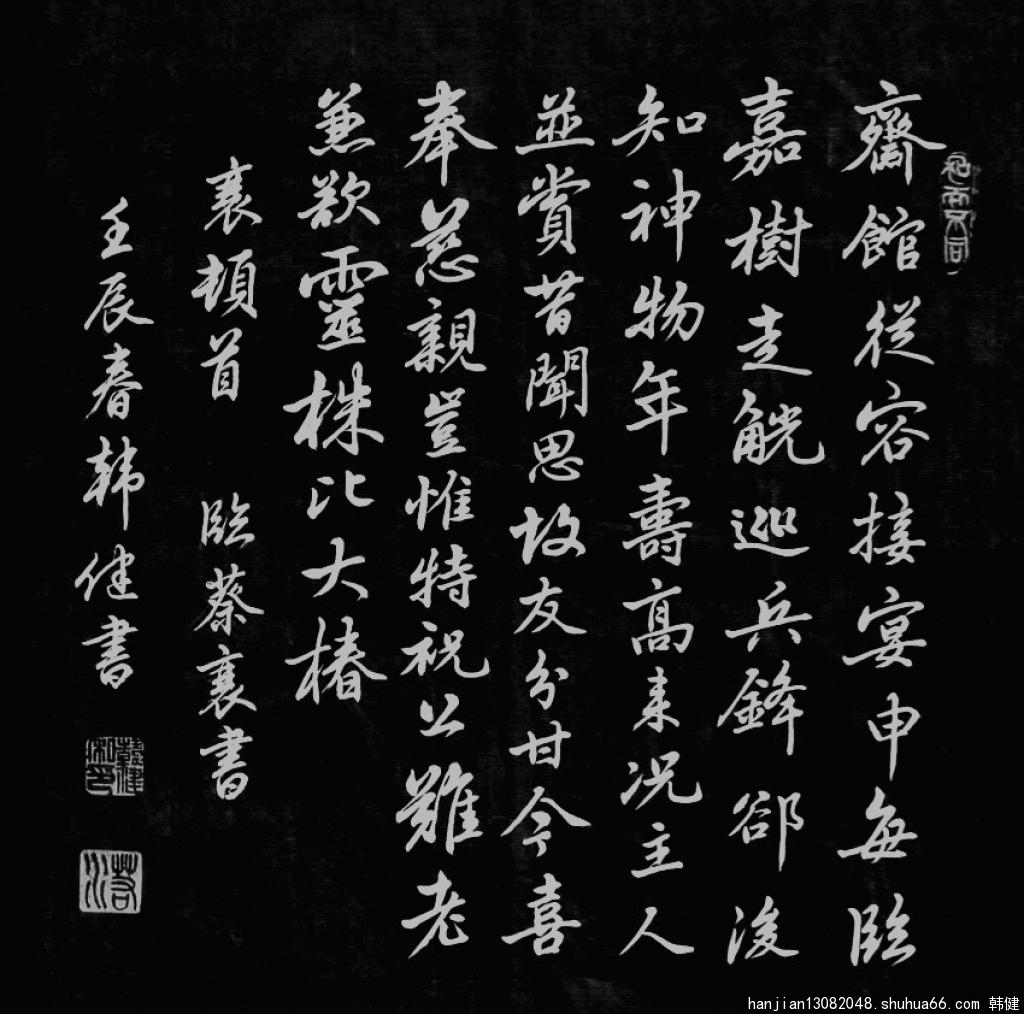 齋館從容接宴申每臨
嘉樹走觥巡兵鋒郤後
知神物年壽高來況主人
並賞昔聞思故友分甘今喜
奉慈親豈惟特祝公難老
兼欲靈株比大椿
襄頓首 臨蔡襄書
壬辰春韩健書
hanjian13082048.shuhua66.com 韩健